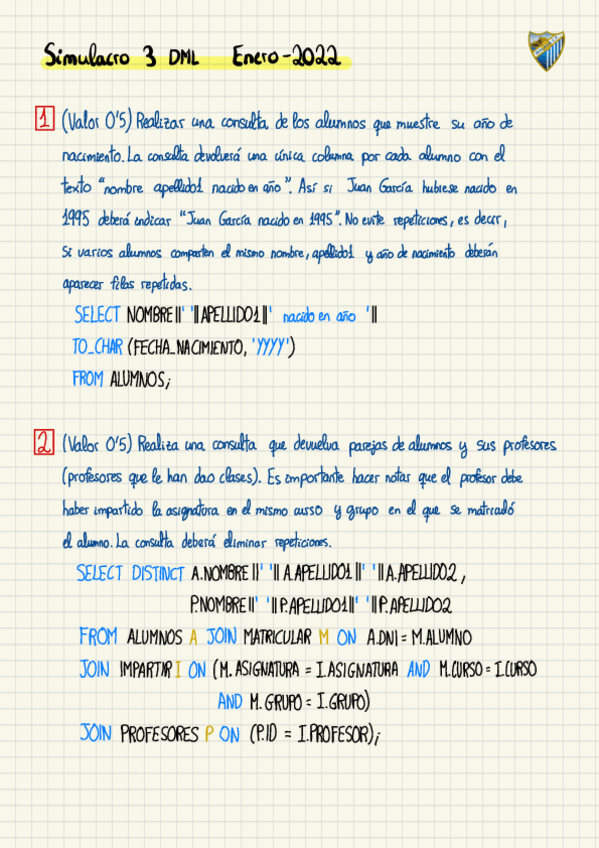 Simulacro 3 DML Enero-2022
1 (Valor 0'5) Realizar una consulta de los alumnos que muestre su año de
nacimiento. La consulta devolverá una única columna por cada alumno con el
texto "nombre apellido1 nacido en año". Así si Juan García hubiese nacido en
1995 deberá indicar "Juan García nacido en 1995". No evite repeticiones, es decir,
si varios alumnos comparten el mismo nombre, apellido1 y año de nacimiento deberán
aparecer filas repetidas.
SELECT NOMBRE||' '||APELLIDO1||' nacido en año '||
TO_CHAR (FECHA_NACIMIENTO, 'YYYY')
FROM ALUMNOS;
2 (Valor 0'5) Realiza una consulta que devuelva parejas de alumnos y sus profesores
(profesores que le han dao clases). Es importante hacer notar que el profesor debe
haber impartido la asignatura en el mismo curso y grupo en el que se matriculó
el alumno. La consulta deberá eliminar repeticiones.
SELECT DISTINCT A.NOMBRE||' '||A.APELLIDO1||' '||A.APELLIDO2,
P.NOMBRE||' '||P.APELLIDO1||' '||P.APELLIDO2
FROM ALUMNOS A JOIN MATRICULAR M ON A.DNI = M.ALUMNO
JOIN IMPARTIR I ON (M.ASIGNATURA = I.ASIGNATURA AND M.CURSO = I.CURSO
AND M.GRUPO = I.GRUPO)
JOIN PROFESORES P ON (P.ID = I.PROFESOR);